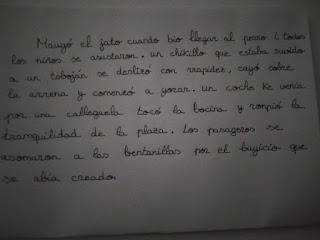 Mauyó el jato cuando bio llegar al perro i todos
los niños se asustaron. un chikillo que estaba suvido
a un toboján se deslizó con rrapidez, cayó sobre
la arrena y comenzó a yorar. un coche ke venía
por una calleguela tocó la bocina y ronpió la
tranquilidad de la plaza. Los pasageros se
asomaron a las bentanillas por el buyicio que
se abía creado.